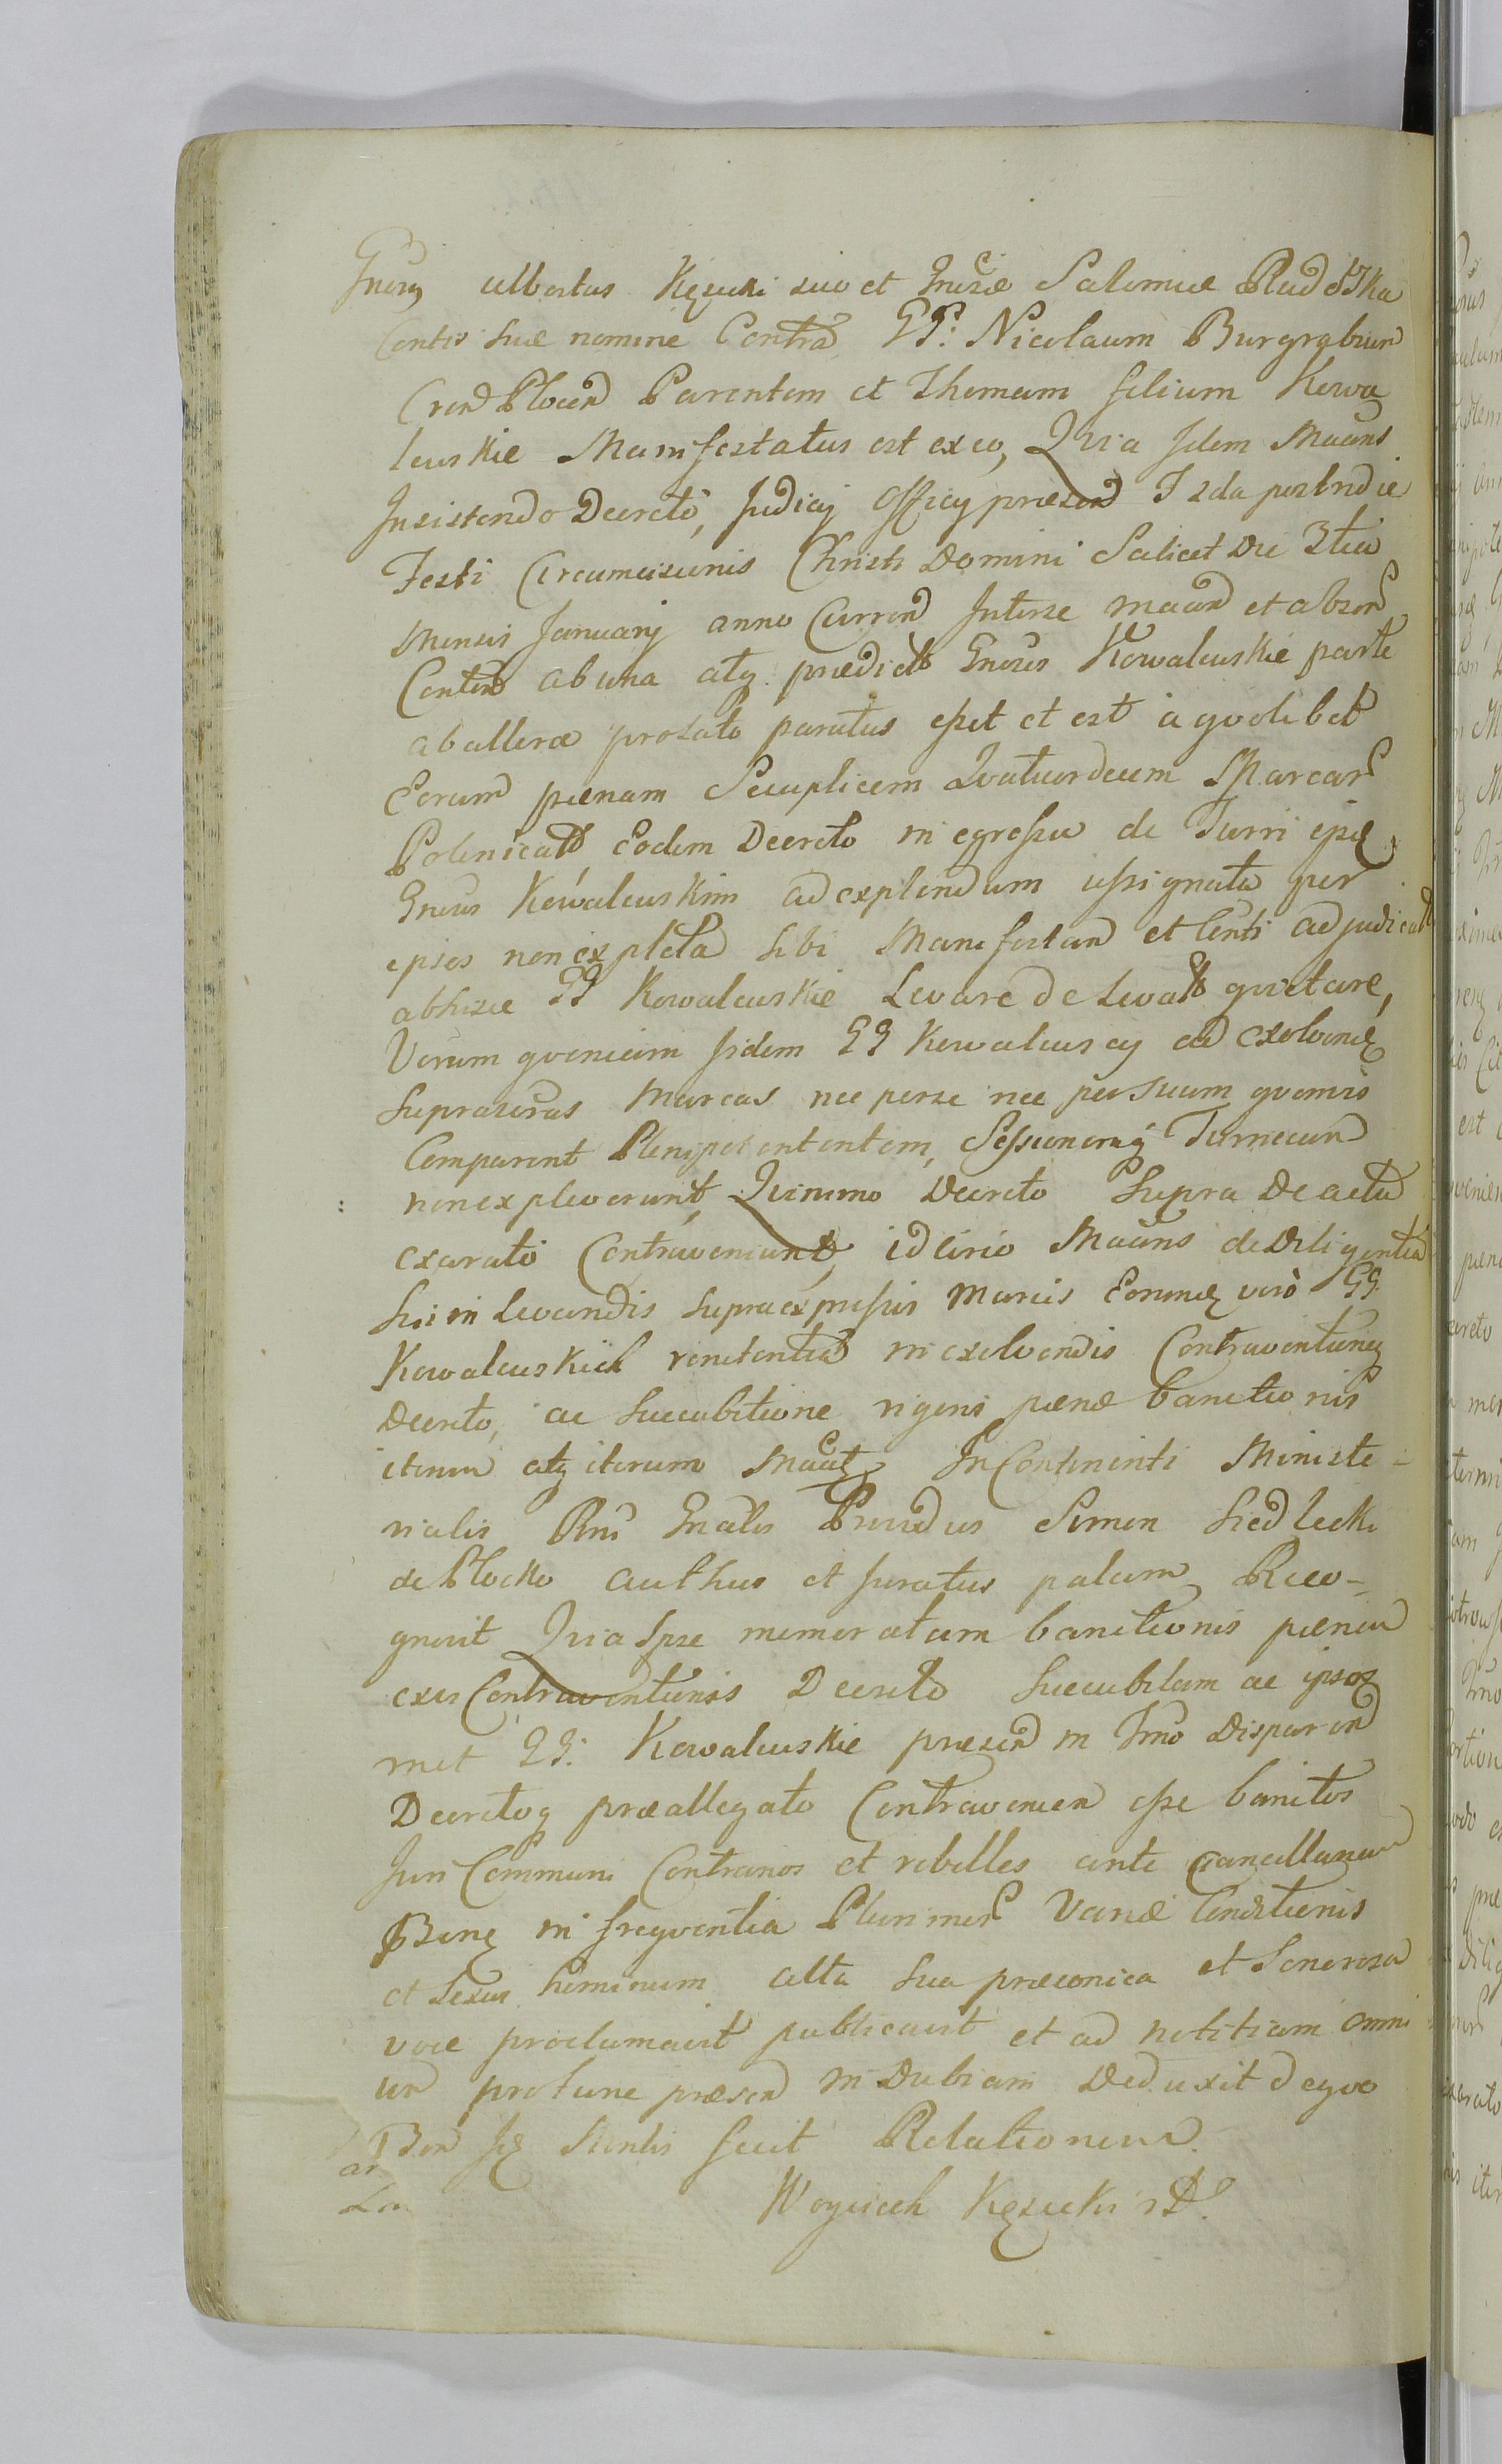 Gnosus Albertus Kęsicki suo et Gnosæ Salomeæ Rudzka
Contis suæ nomine Contra GG: Nicolaum Burgrabium
Cren Plocen Parentem et Thomam filium Kowa
lewskie Manifestatus est ex eo, Quia Idem Maans
Insistendo Decreto, Judicij Officij præsen F 2da postridie
Festi Circumcisionis Christi Domini Scilicet Die 3tia
Mensis Januarij anno Curren Inter se maan et absen
Conten ab una atq prædict Gnosos Kowalewskie parte
ab altera prolato paratus esset et est à qvolibet
Eorum pænam Sexuplicem Qvatuordecim Marcar
Polonicalt Eodem Decreto in egressu de Turri ipse
Gnosis Kowalewskim ad explendum assignata per
ipsos non expleta sibi Manifestan et Conti adjudicat
abhisce GG Kowalewskie Levare de Levatt qvietare,
Verum qvoniam iidem GG Kowalewscy ad exolvend
suprascras Marcas nec per se nec per suum qvomvis
Comparent Plenipotententem, Sessionemq Turrecum
non expleverunt, Quinimo Decreto Supra De actu
exarato Contraveniunt, idcirco Maans de Diligentia
sui in levandis supra expressis Marcis Eorumq verò GG
Kowalewskich renitentia in exolvendis Contraventioneq
Decreto, ac Succubitione vigens pænæ banitionis
iterum atq iterum Maatq In Continenti Ministe-
rialis Rni Gnalis Providus Simon Siedlecki
de Plocko Authus et Juratus palam Reco-
gnovit Quia Ipse memoratam banitionis pænam
ex vi Contraventionis Decreto Succubitam ac ipsos
met GG: Kowalewskie præsen in Tmo Disparen
Decretoq præallegato Contravenien esse banitos
Juri Communi Contrarios et rebelles ante Cancellariam
Psenq in freqventia Plurimor Variæ Conditionis
et Sexus hominum alta sua præconica et Sonorosa
voce proclamavit publicavit et ad notitiam omni
um pro tunc præsen in Dubiam Deduxit de qvo
Psen Scientis fecit Relationem.
Woyciech Kęsicki